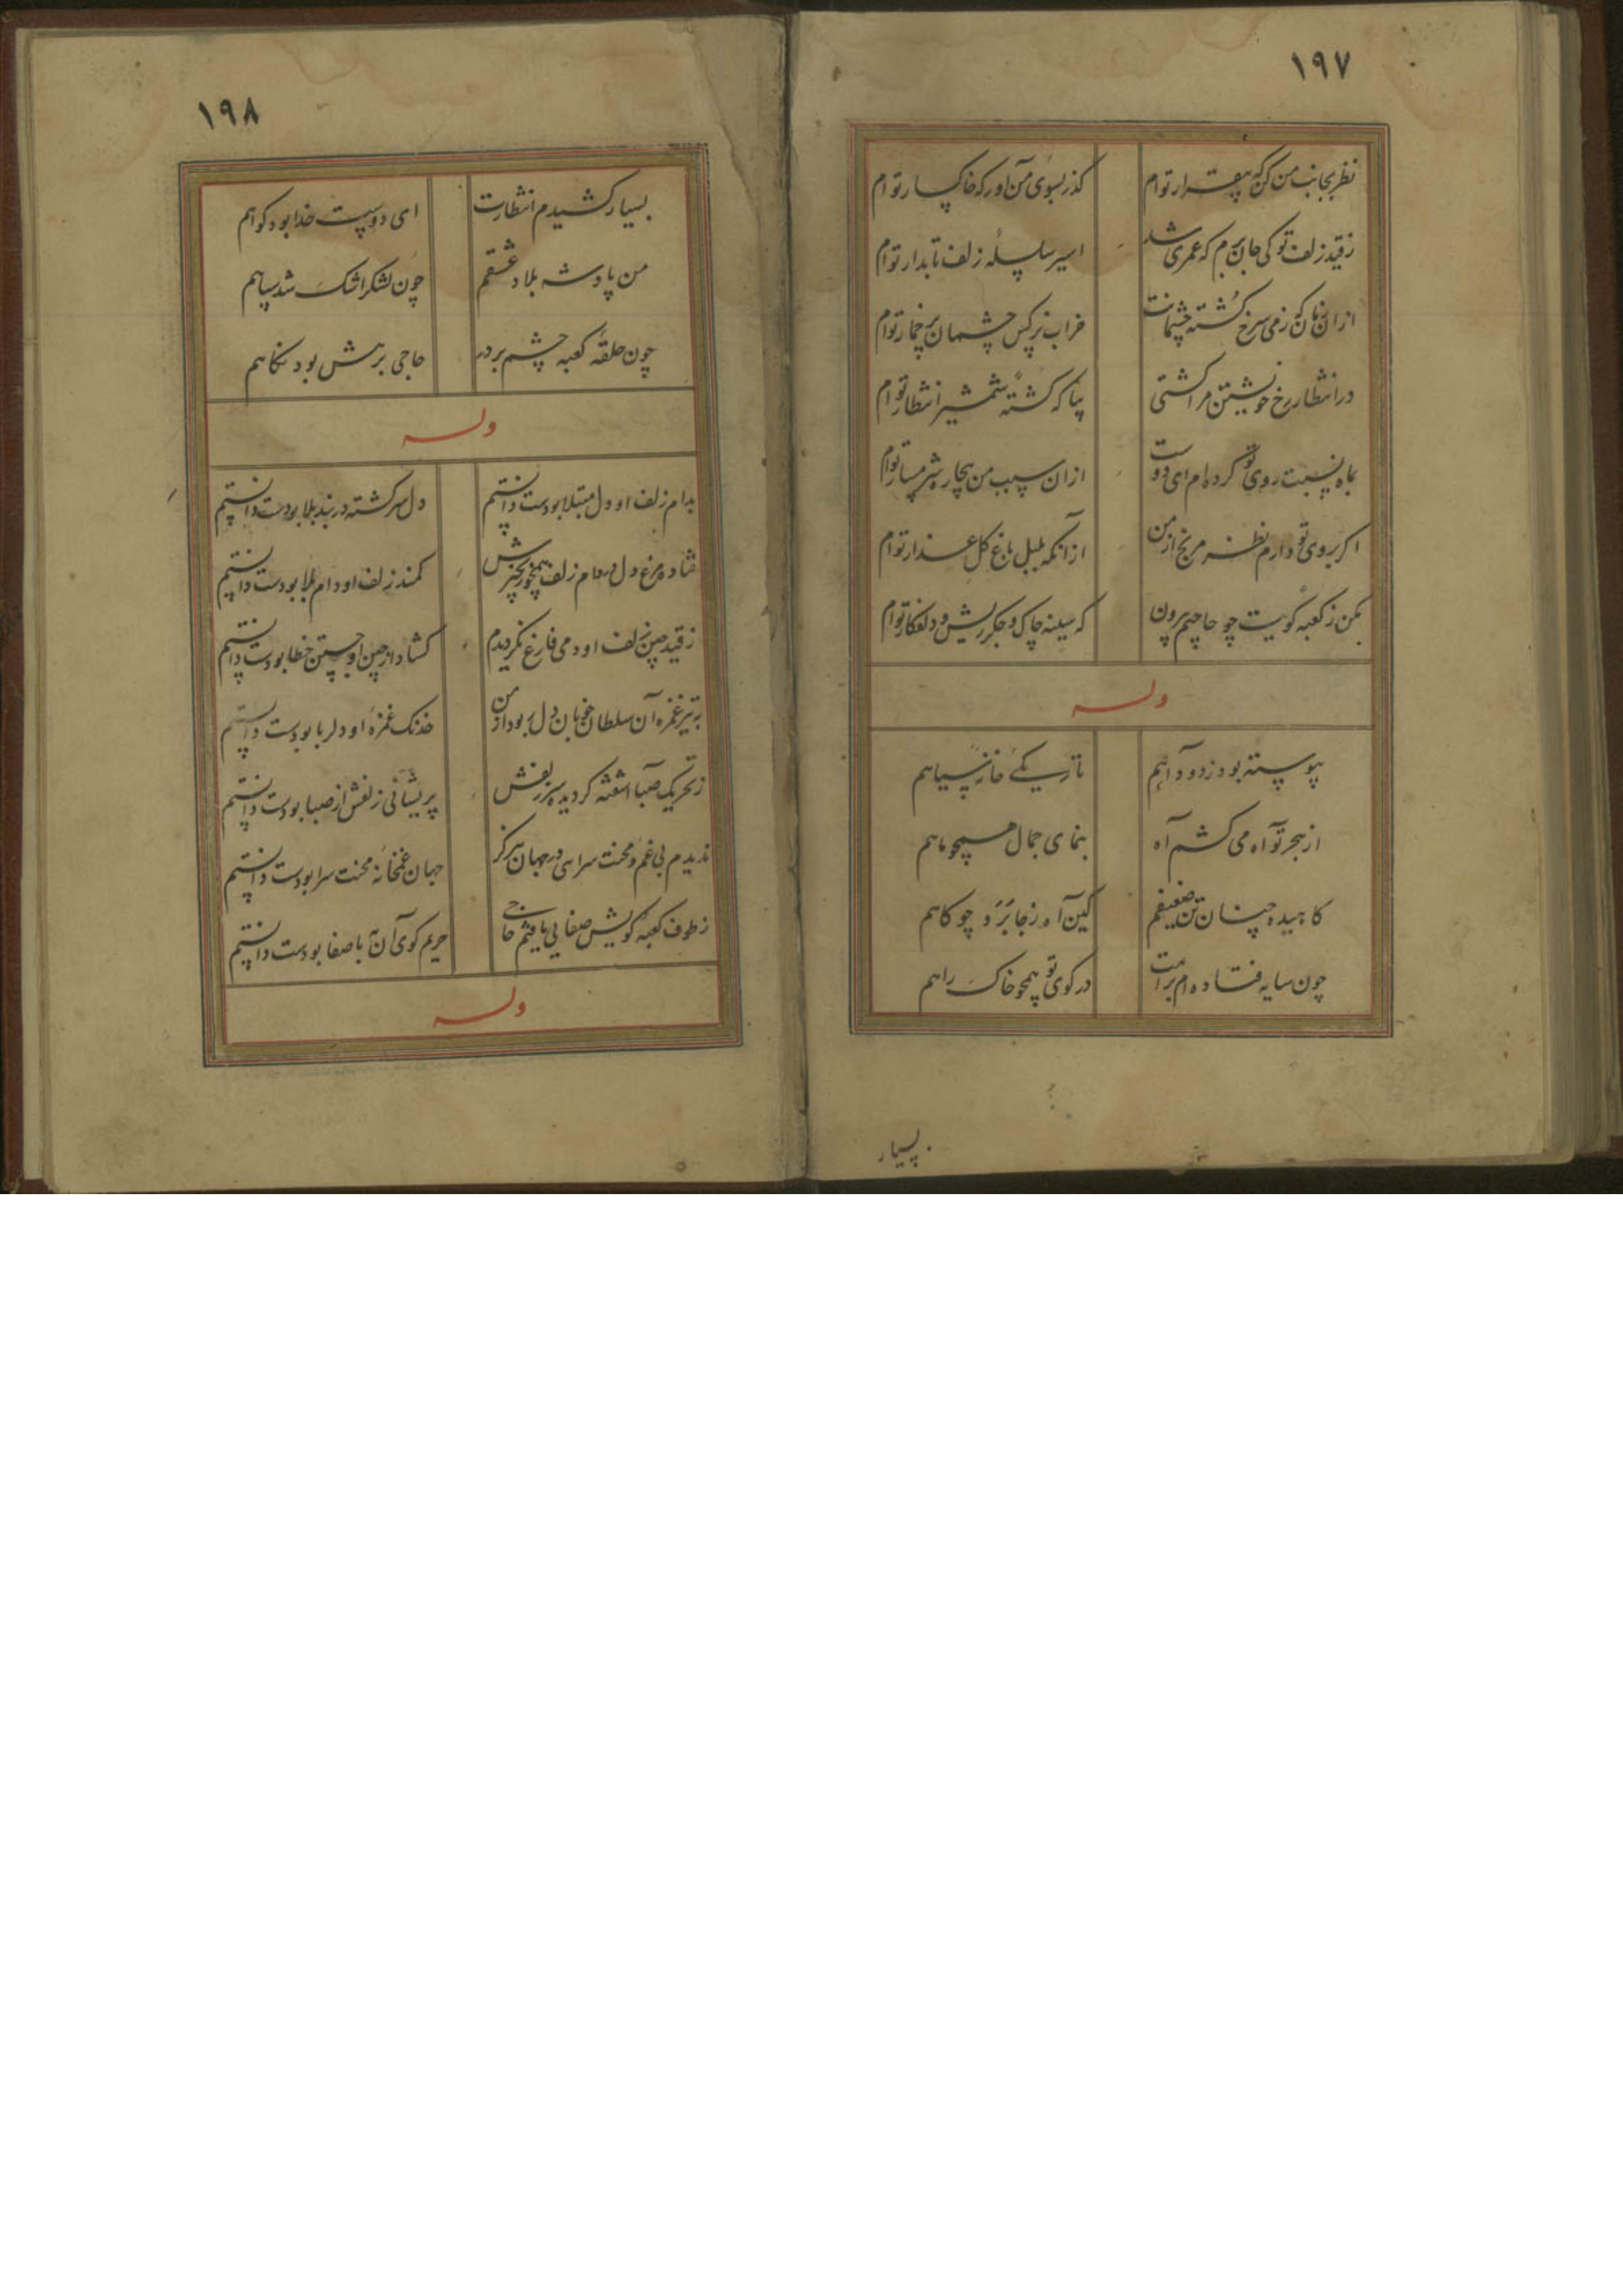 ۱۹۷
نظر بجانب من کن که بیقرار توام گذر بسوی من آور که خاکسار توام
ز قید زلف تو کی جان برم که عمری شد اسیر سلسلهٔ زلف تابدار توام
از ان زمان که ز می سرخ گشته چشمانت خراب نرکس چشمان پر خمار توام
در انتظار رخ خویشتن مرا کشتی بیا که کشتهٔ شمشیر انتظار توام
بماه نسبت روی تو کرده ام ای دوست از ان سبب من بیچاره شرمسار توام
اکر بروی تو دارم نظر مرنج از من از انکه بلبل باغ کل عذار توام
مکن ز کعبه کویت چو حاجیم بیرون که سینه چاک و جکر ریش و دلفکار توام
وله
پیوسته بود ز دود آهم تاریکی خانهٔ سیاهم
از هجر تو آه می کشم آه بنمای جمال همچو ماهم
کاهیده چنان تن ضعیفم کین آه ز جا برد چو کاهم
چون سایه فتاده ام براهت در کوی تو همچو خاک راهم
بسیار
۱۹۸
بسیار کشیدم انتظارت ای دوست خدا بود کواهم
من پادشه بلاد عشقم چون لشکر اشک شد سپاهم
چون حلقه کعبه چشم بر در حاجی برهش بود نکاهم
وله
بدام زلف او دل مبتلا بودست دانستم دل سرکشته در بند بلا بودست دانستم
فتاده مرغ دل در دام زلف همچو زنجیرش کمند زلف او دام بلا بودست دانستم
ز قید چین زلف او دمی فارغ نکردیدم کشاد از چین او جستن خطا بودست دانستم
به تیر غمزه آن سلطان خوبان دل ربود از من خدنک غمزه او دلربا بودست دانستم
ز تحریک صبا آشفته کردیده سر زلفش پریشانی زلفش از صبا بودست دانستم
ندیدم بی غم و محنت سرایی در جهان هرکز جهان غمخانهٔ محنت سرا بودست دانستم
ز طوف کعبه کویش صفایی یافتم حاجی حریم کوی آن با صفا بودست دانستم
وله